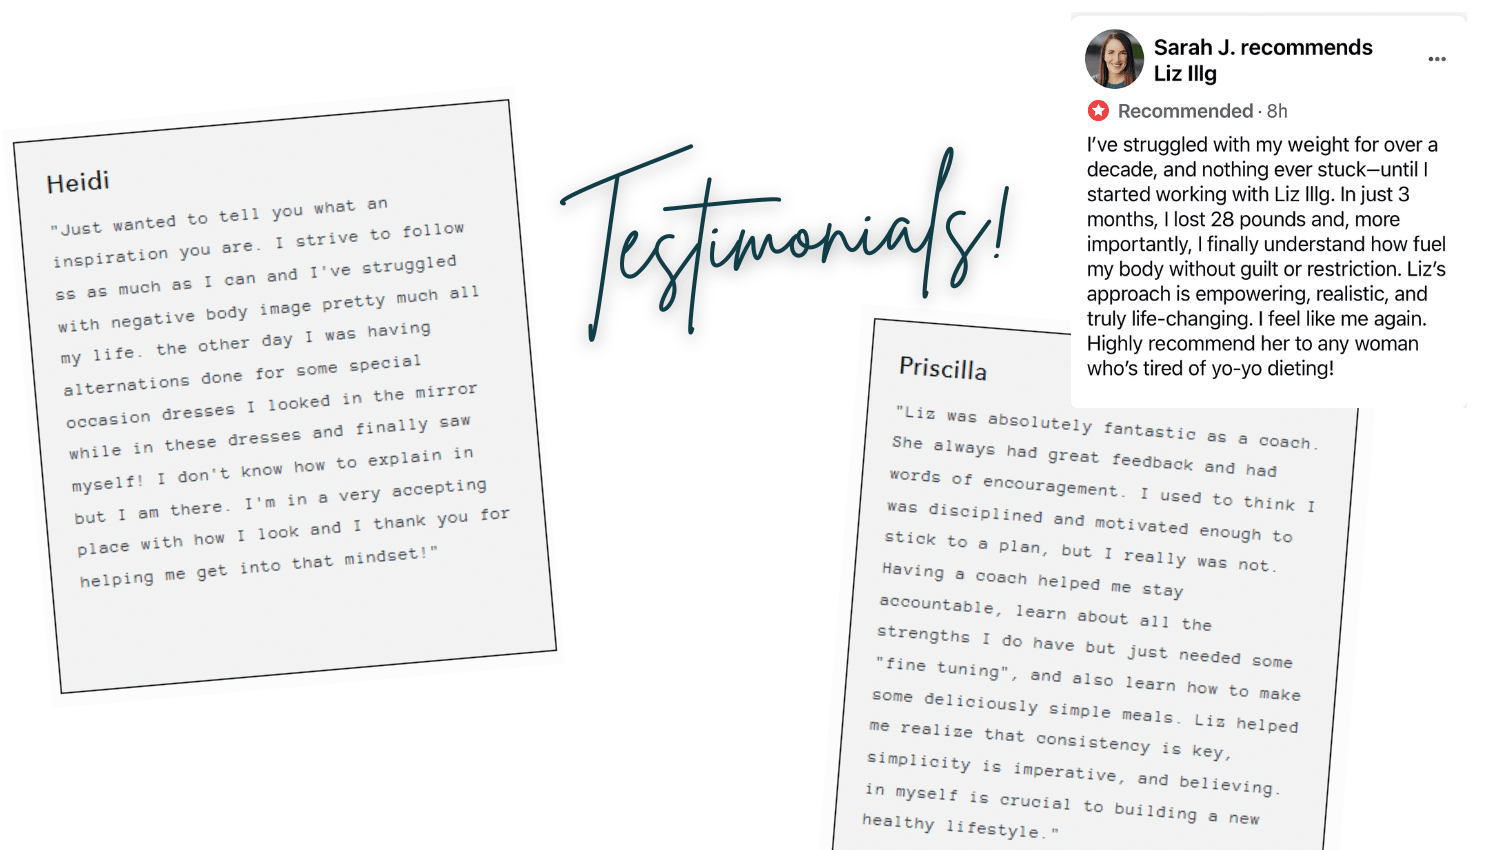 Heidi
"Just wanted to tell you what an
inspiration you are. I strive to follow
ss as much as I can and I've struggled
with negative body image pretty much all
my life. the other day I was having
alternations done for some special
occasion dresses I looked in the mirror
while in these dresses and finally saw
myself! I don't know how to explain in
but I am there. I'm in a very accepting
place with how I look and I thank you for
helping me get into that mindset!"
Testimonials!
Sarah J. recommends
Liz Illg
Recommended · 8h
I’ve struggled with my weight for over a
decade, and nothing ever stuck—until I
started working with Liz Illg. In just 3
months, I lost 28 pounds and, more
importantly, I finally understand how fuel
my body without guilt or restriction. Liz’s
approach is empowering, realistic, and
truly life-changing. I feel like me again.
Highly recommend her to any woman
who’s tired of yo-yo dieting!
Priscilla
"Liz was absolutely fantastic as a coach.
She always had great feedback and had
words of encouragement. I used to think I
was disciplined and motivated enough to
stick to a plan, but I really was not.
Having a coach helped me stay
accountable, learn about all the
strengths I do have but just needed some
"fine tuning", and also learn how to make
some deliciously simple meals. Liz helped
me realize that consistency is key,
simplicity is imperative, and believing.
in myself is crucial to building a new
healthy lifestyle."